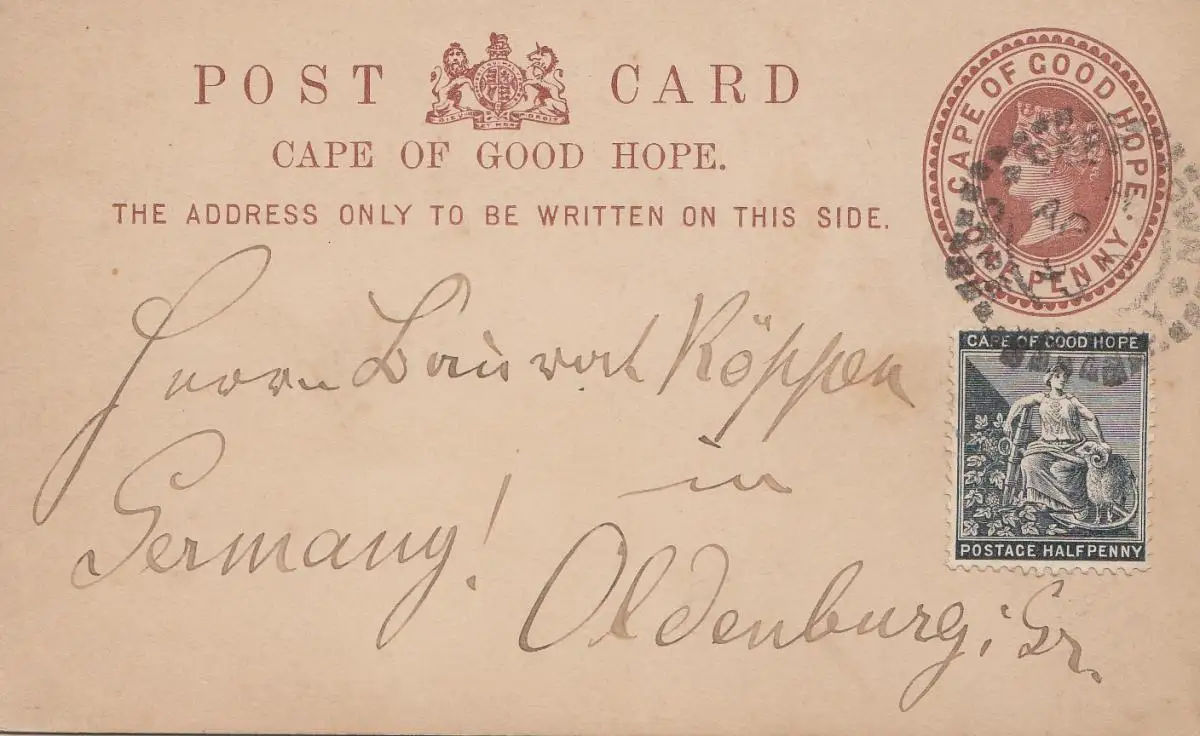 POST CARD
CAPE OF GOOD HOPE.
THE ADDRESS ONLY TO BE WRITTEN ON THIS SIDE.
CAPE OF GOOD HOPE.
ONE PENNY
CAPE OF GOOD HOPE
POSTAGE HALFPENNY
Herrn Baurat Köppen
in
Germany!
Oldenburg i. Gr.